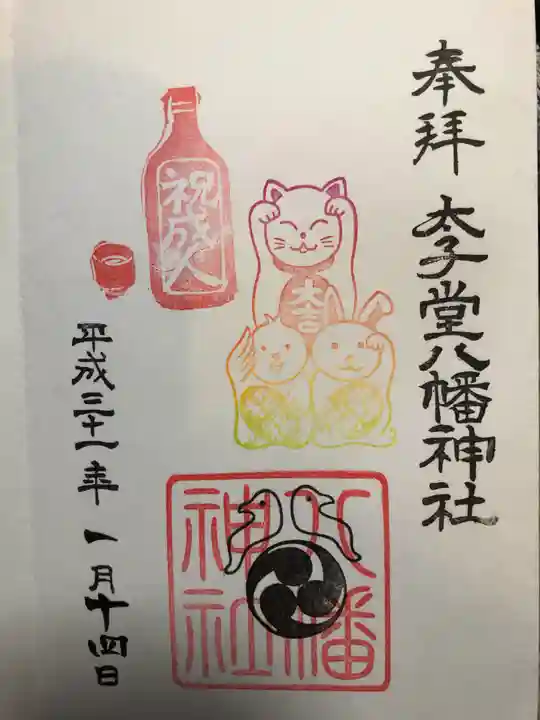 奉拝 太子堂八幡神社
祝成人
大吉
八幡
神社
平成三十一年 一月十四日